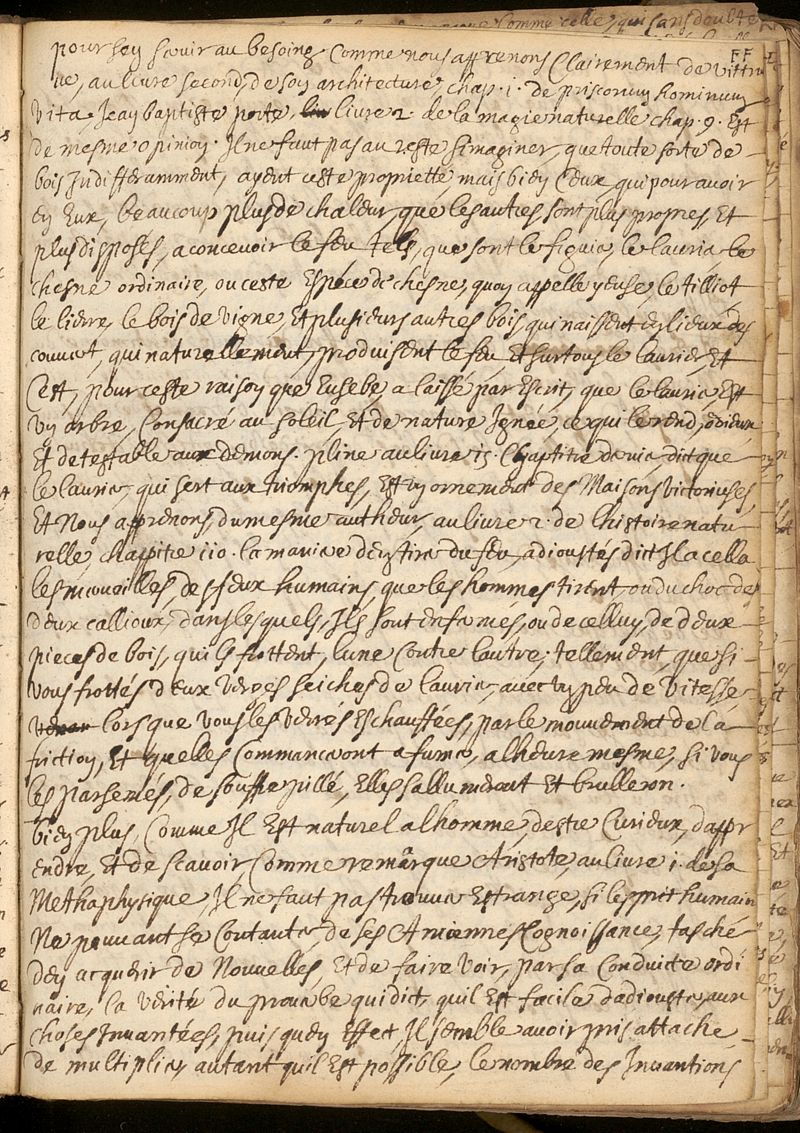 FF
pour sen servir au besoing Comme nous apprenons Clairement de vittru
ve, au livre second, de son architecture, chap. i. de priscorum hominum
vita, Jean baptiste porte, livre 2. de la magie naturelle chap. 9. Est
de mesme opinion. Il ne faut pas au reste simaginer, que toute sorte de
bois Indifferamment, ayent ceste proprietté mais bien Ceux, qui pour avoir
en Eux, beaucoup plus de chaleur, que les autres sont plus propres, Et
plus disposés, a concevoir le feu, tels, que sont le figuier, le laurier, le
chesne ordinaire, ou ceste Espéce de chesne, quon appelle yeuse, le tilliot
le lierre, le bois de vigne, Et plusieurs autres bois, qui naissent en lieux des
couvert, qui naturellement, produisent le feu, Et sur tous le laurier, Et
Cest, pour ceste raison que Eusebe, a laissé par Escrit, que le laurier Est
un arbre, Consacré au soleil, Et de nature Ignée, ce qui le rend, odieux
Et detestable aux demons. pline au livre 15. Chapitre dernier, dit que
le laurier, qui sert aux triomphes, Est un ornement des Maisons victorieuses,
Et Nous apprenons, du mesme autheur, au livre 2. de lhistoire natu-
relle, chappitre 110. la maniere den tirer du feu, adioustés dict Il a cella
les merveilles, des feux humains, que les hommes tirent, ou du choc de
deux callioux, dans lesquels, Ils sont enfermés, ou de celluy, de deux
pieces de bois, quils frottent, lune Contre lautre; tellement, que si
vous frottés deux verges seiches de laurier, avec un peu de vitesse
lors que vous les verrés Eschauffées, par le mouvement de la
friction, Et quelles Commanceront a fumer, a lheure mesme, si vous
les parsemés, de souffre pillé, Elles sallumeront Et brulleron.
bien plus, Comme Il Est naturel a lhomme, destre Curieux, dappr
endre, Et de scavoir, Comme remarque Aristote, au livre i. de sa
Methaphysique, Il ne faut pas trouver Estrange, si lesprit humain
Ne pouvant se Contanter, de ses Anciennes Cognoissance, tasché
den acquerir de Nouvelles, Et de faire voir, par sa Conduicte ordi
naire, la vérité du proverbe qui dict, quil Est facile dadiouster, aux
choses Invantées, puis quen Effect, Il semble avoir pris attache
de multiplier, autant quil Est possible, le nombre des Invantions